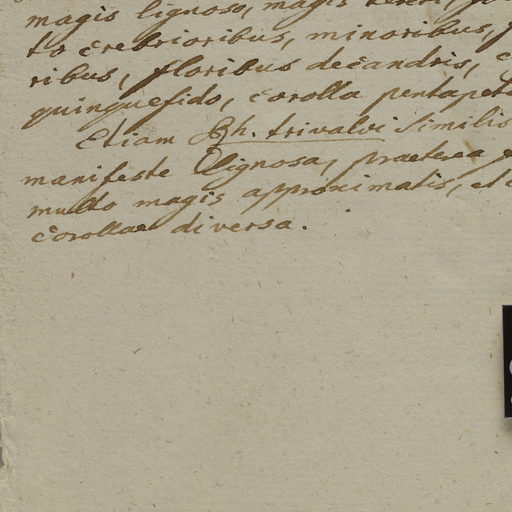 magis lignoso, magis
to crebrioribus, minoribus,
ribus, floribus decandris,
quinquefido, corolla pentapet
Etiam Sph. trivalvi similis
manifeste lignosa, praeterea
multo magis approximatis, et
corollae diversa.